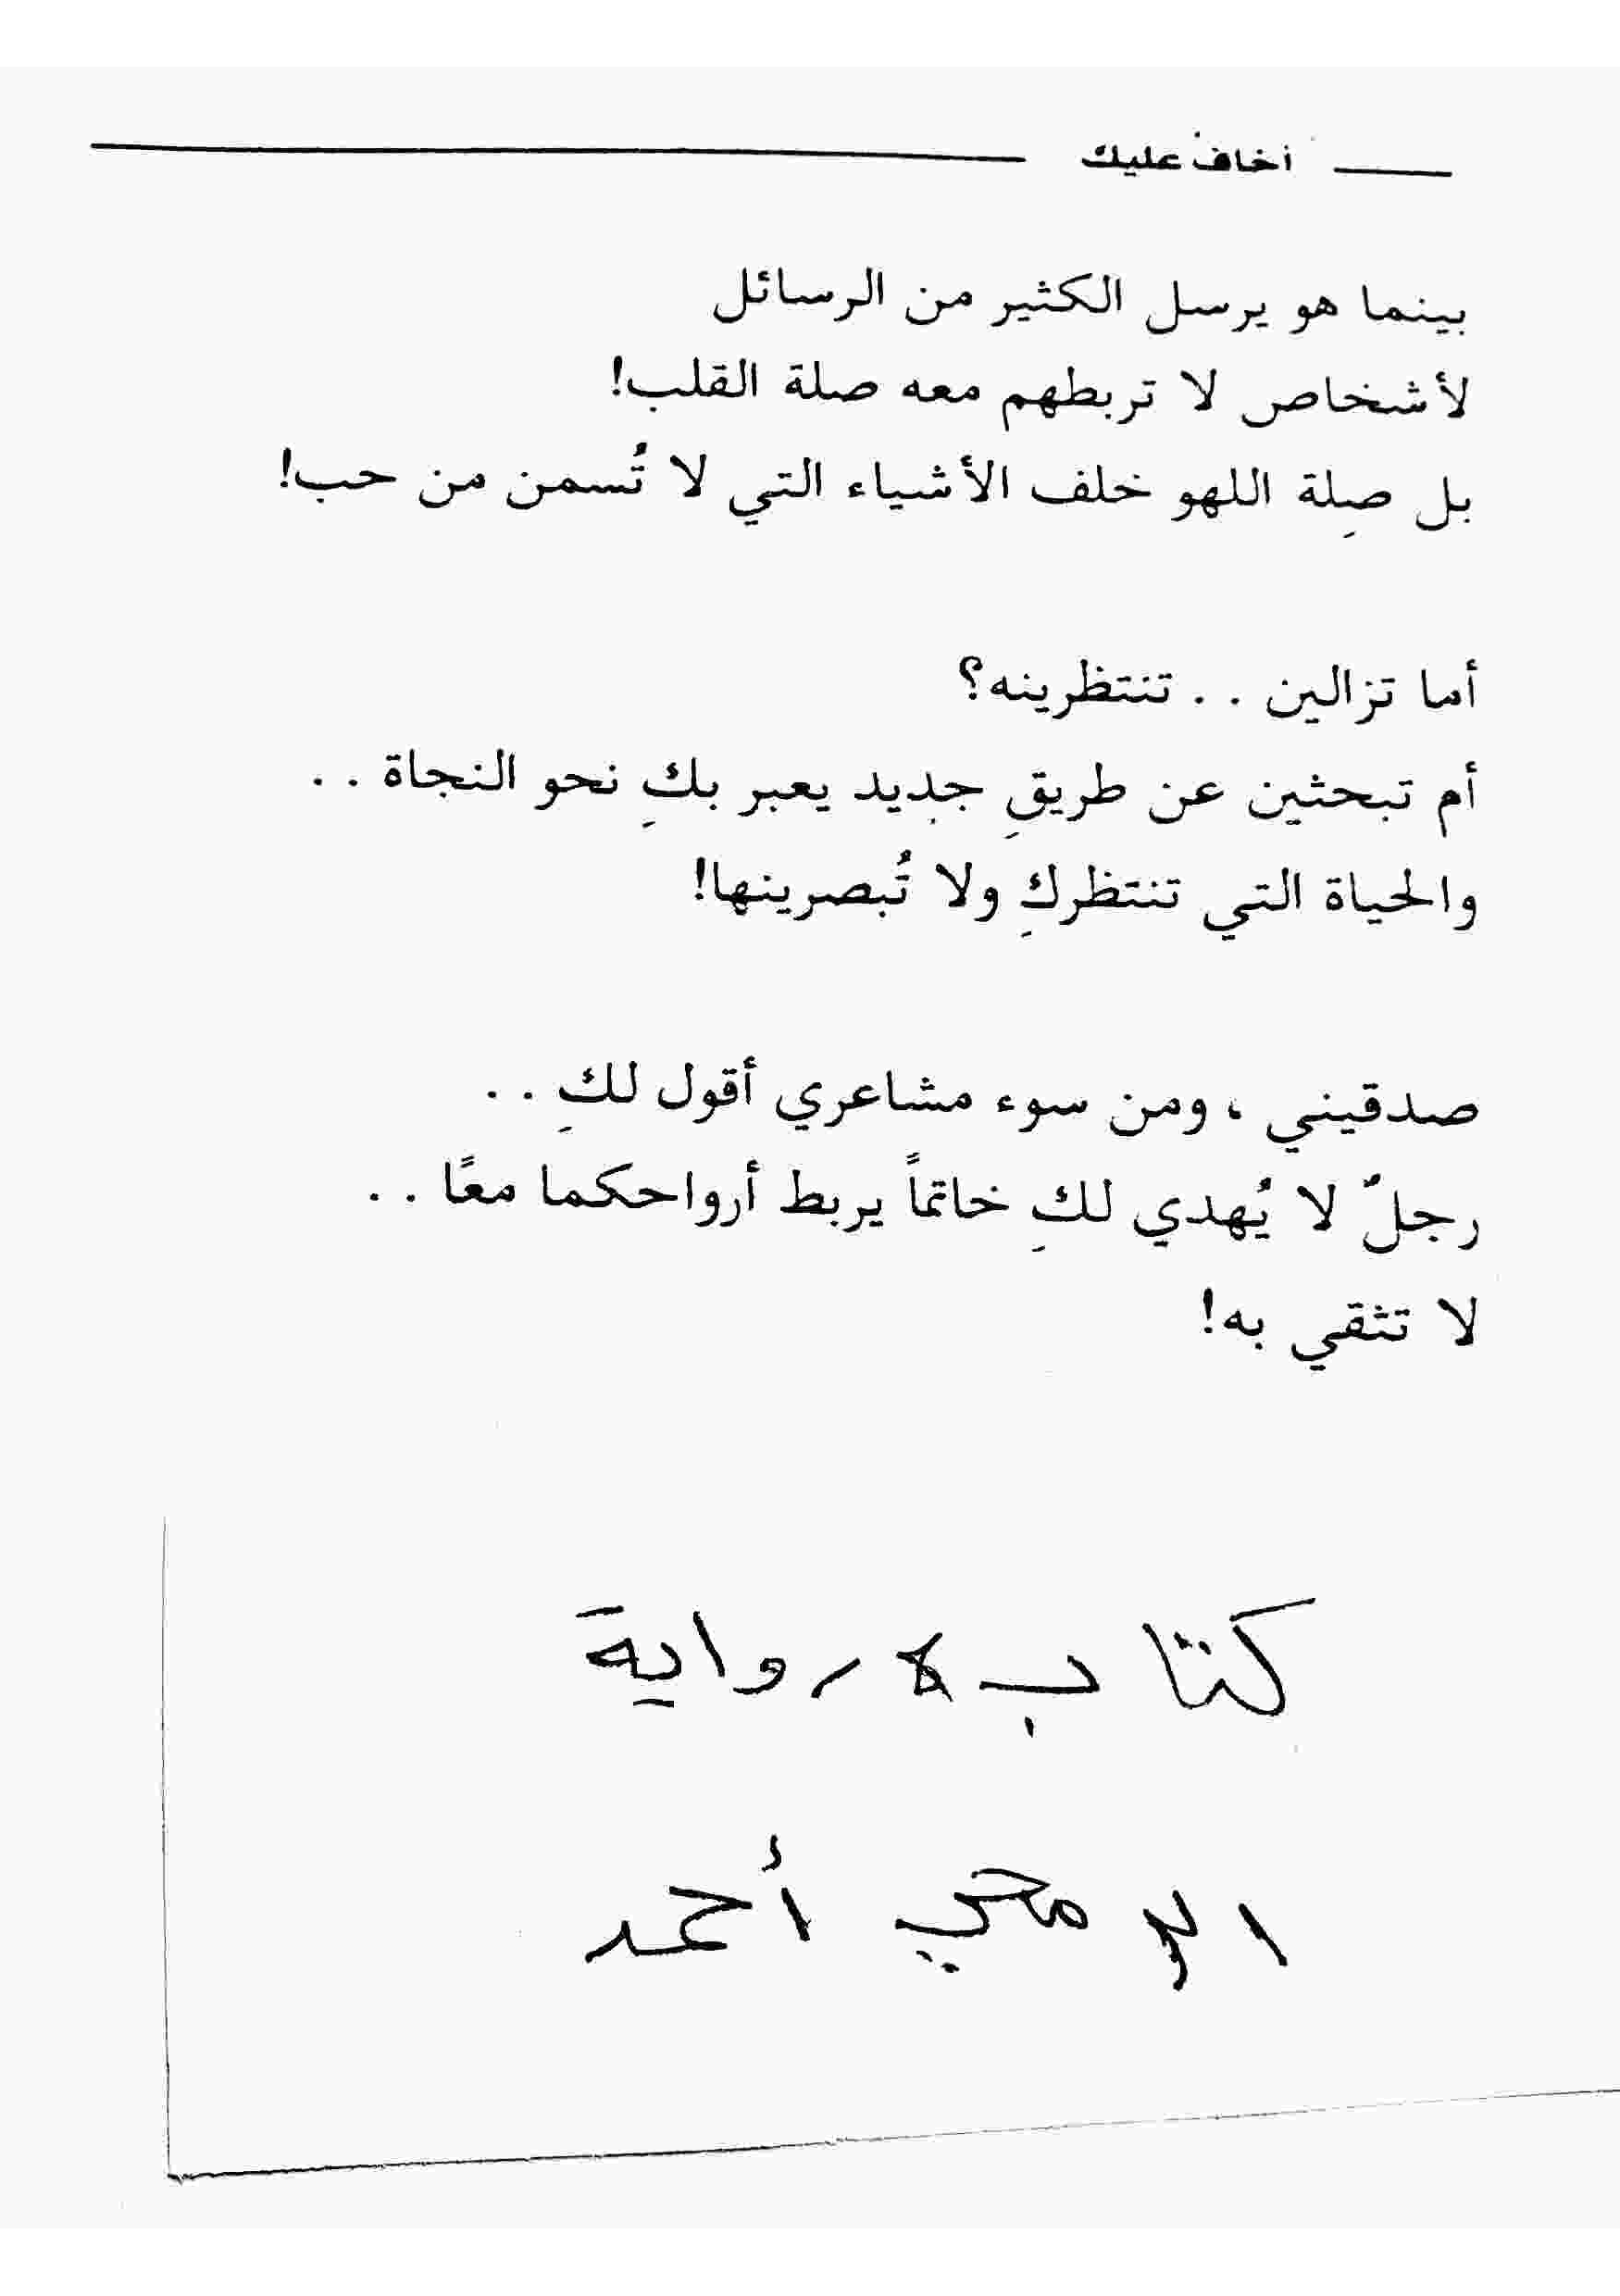 أخاف عليك
بينما هو يرسل الكثير من الرسائل
لأشخاص لا تربطهم معه صلة القلب!
بل صِلة اللهو خلف الأشياء التي لا تُسمن من حب!
أما تزالين . . تنتظرينه؟
أم تبحثين عن طريقِ جديد يعبر بكِ نحو النجاة . .
والحياة التي تنتظركِ ولا تُبصرينها!
صدقيني ، ومن سوء مشاعري أقول لكِ . .
رجلٌ لا يُهدي لكِ خاتماً يربط أرواحكما معًا . .
لا تثقي به!
كتاب لا رواية
محي أحمد